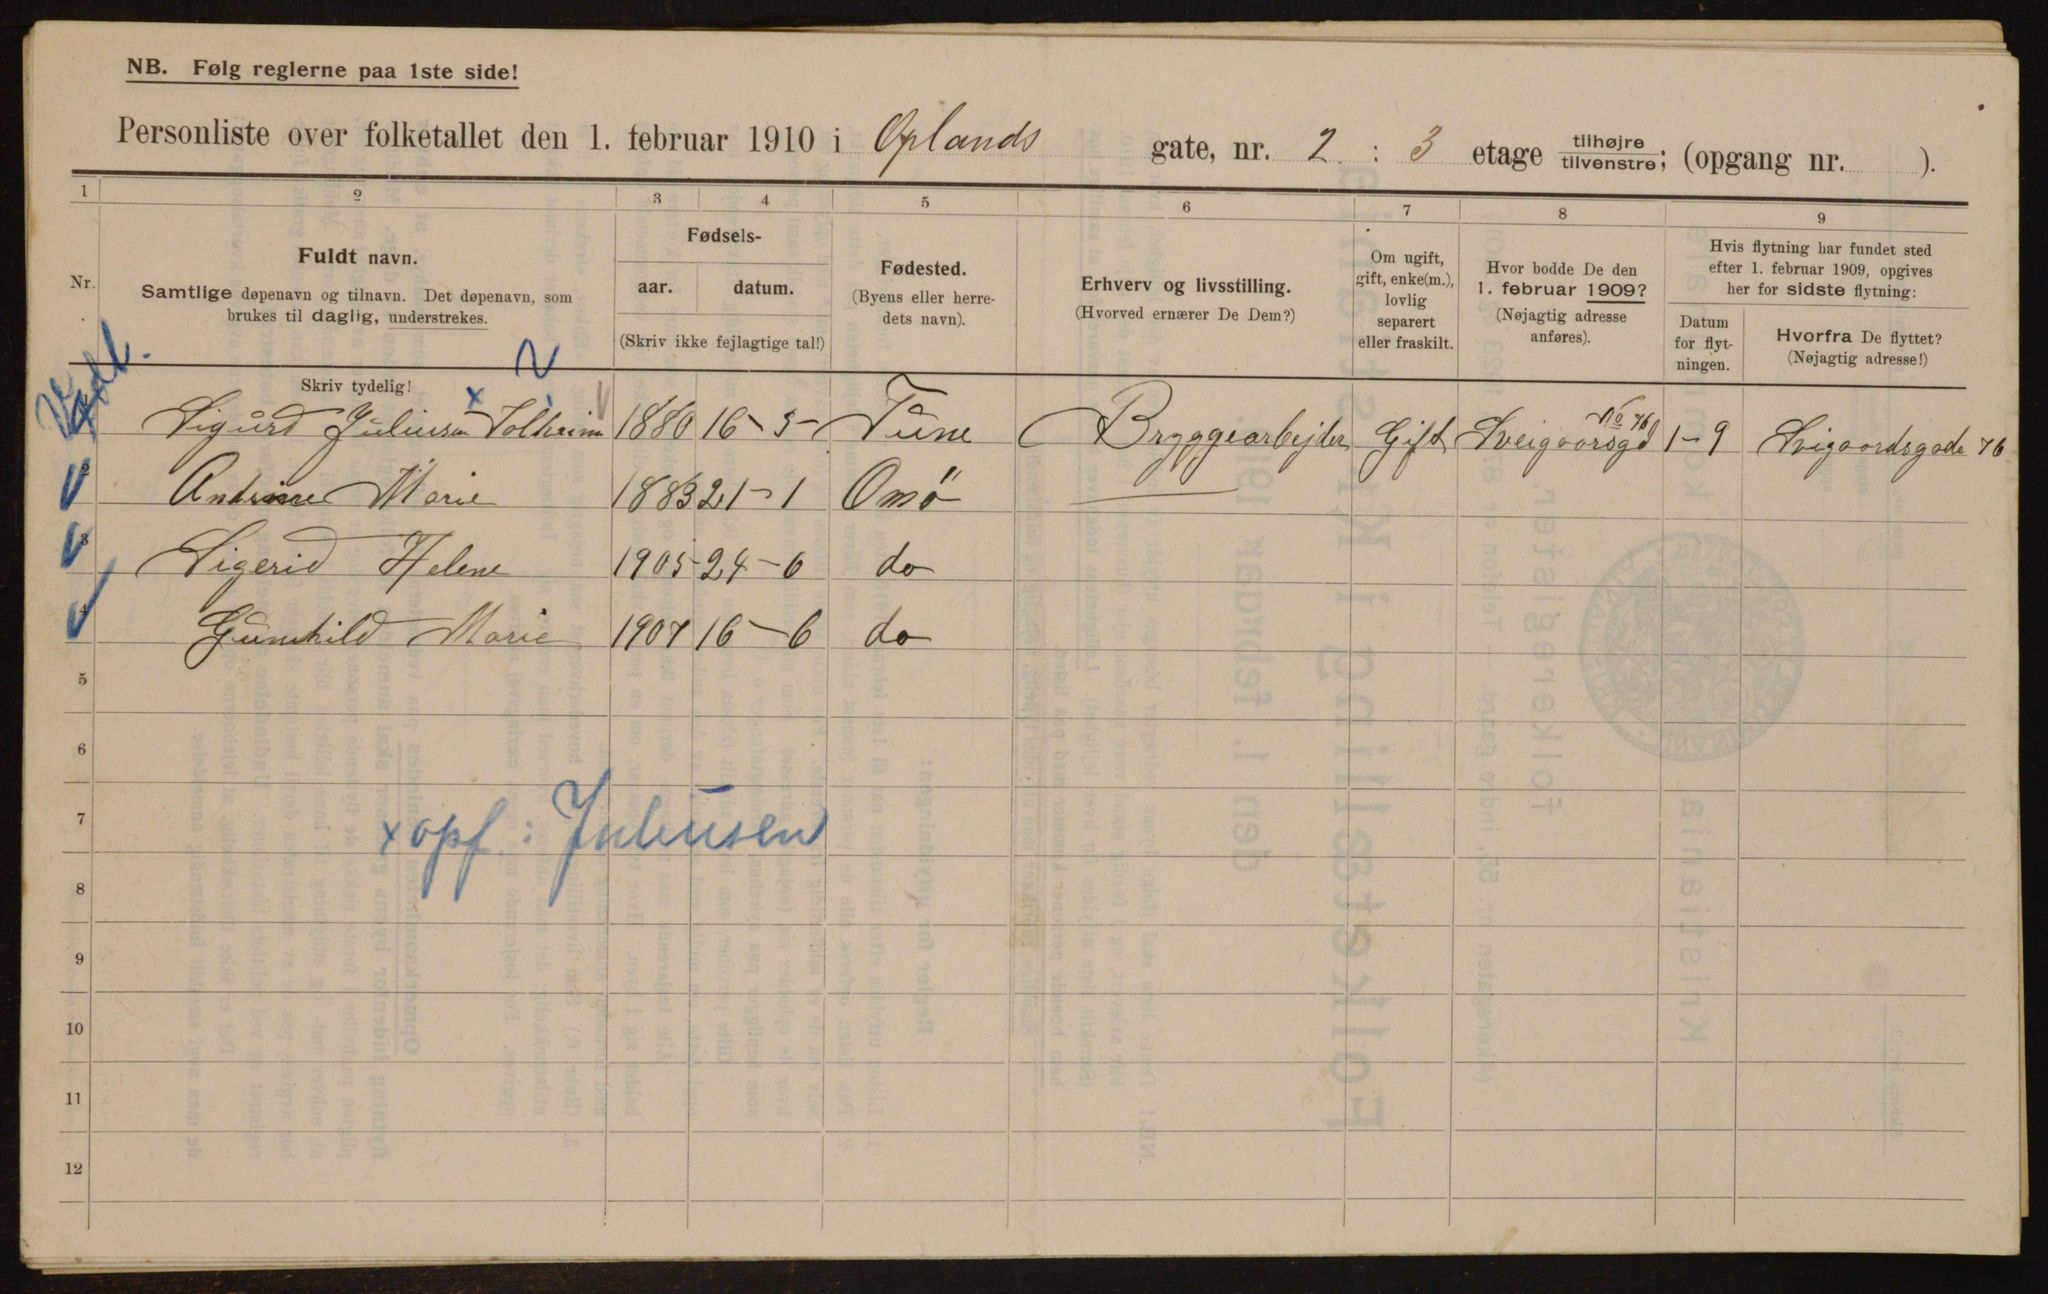 NB. Følg reglerne paa 1ste side!
Personliste over folketallet den 1. februar 1910 i Oplands gate, nr. 2 : 3 etage tilhøjre/tilvenstre; (opgang nr. ).
1 2 3 4 5 6 7 8 9
Nr.
Fuldt navn.
Samtlige døpenavn og tilnavn. Det døpenavn, som
brukes til daglig, understrekes.
Skriv tydelig!
Fødsels-
aar. datum.
(Skriv ikke fejlagtige tal!)
Fødested.
(Byens eller herre-
dets navn).
Erhverv og livsstilling.
(Hvorved ernærer De Dem?)
Om ugift,
gift, enke(m.),
lovlig
separert
eller fraskilt.
Hvor bodde De den
1. februar 1909?
(Nøjagtig adresse
anføres).
Hvis flytning har fundet sted
efter 1. februar 1909, opgives
her for sidste flytning:
Datum
for flyt-
ningen.
Hvorfra De flyttet?
(Nøjagtig adresse!)
Sigurd Juliusen x Solheim 1880 16-5- Tune Bryggearbejder Gift Sveigaorsgd No 76 1-9 Svigaordsgade 76
2 Andrine Marie 1883 21-1 Onsö
3 Sigerid Helene 1905 24-6 do
4 Gunnhild Marie 1907 16-6 do
5
6
7 x opf: Juliusen
8
9
10
11
12